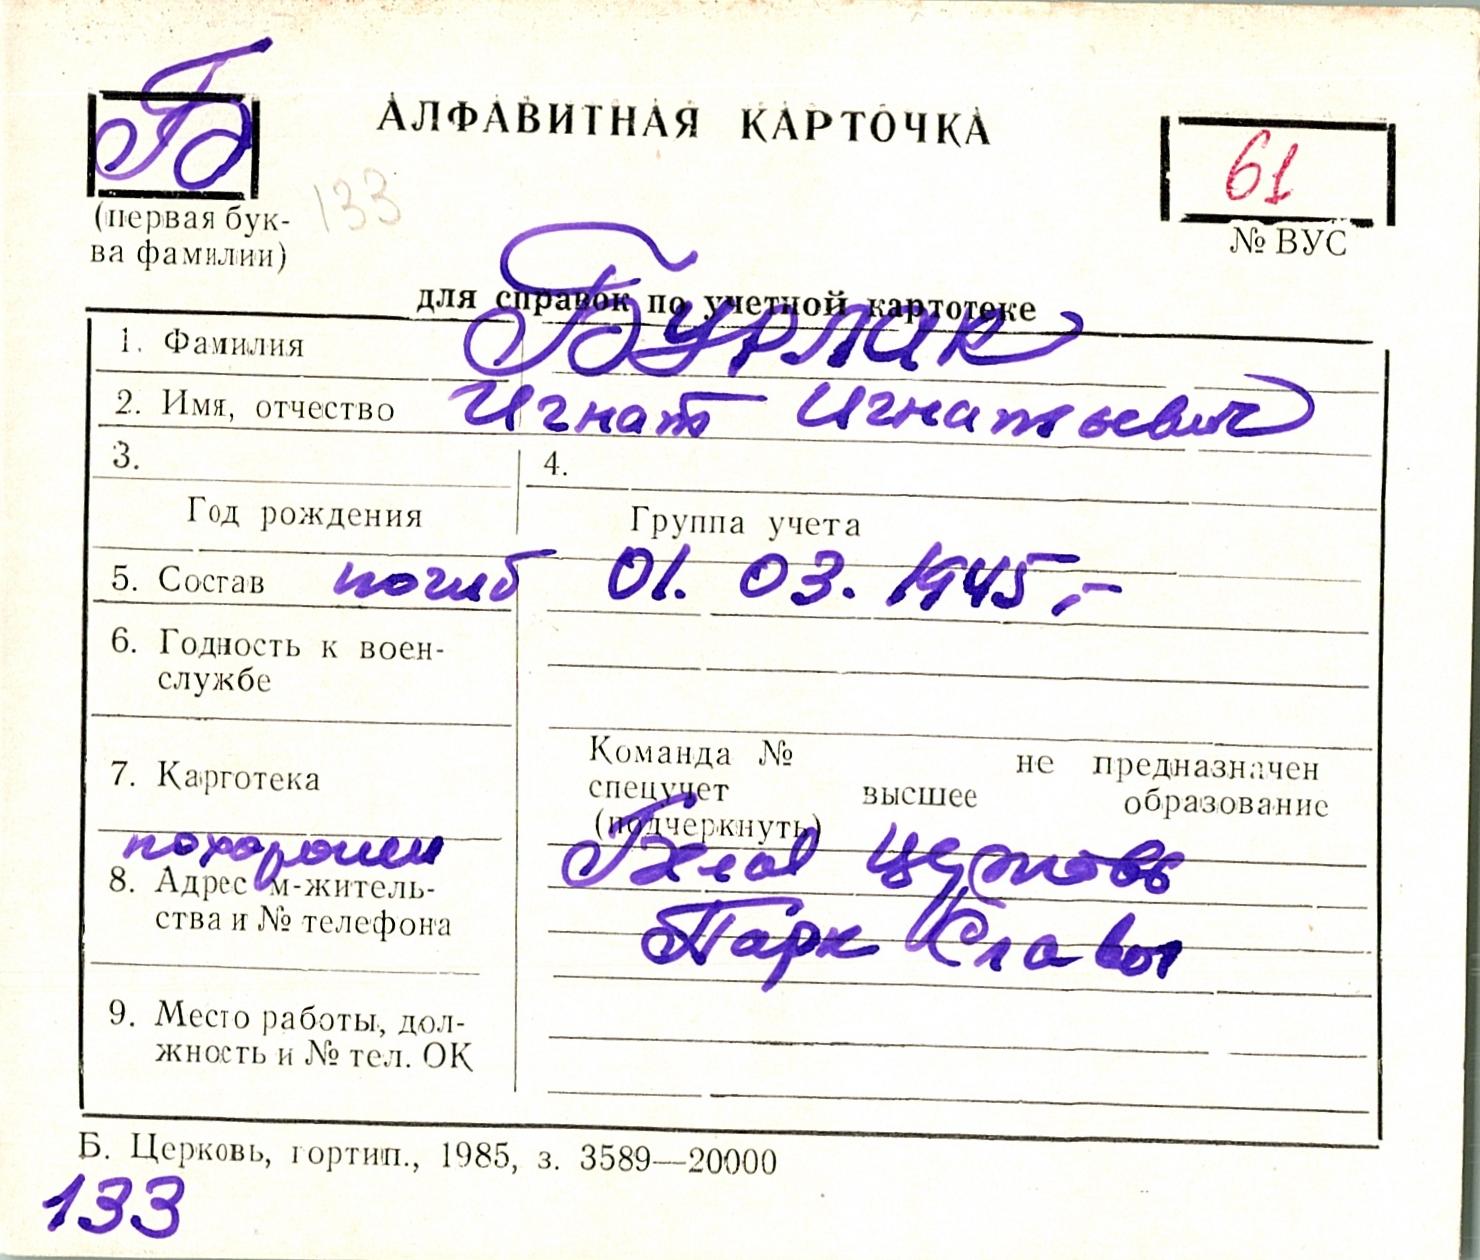 Б
АЛФАВИТНАЯ КАРТОЧКА
61
(первая бук-
ва фамилии)
133
№ ВУС
для справок по учетной картотеке
1. Фамилия Бурлак
2. Имя, отчество Игнат Игнатьевич
3.
4.
Год рождения
Группа учета
5. Состав погиб 01. 03. 1945,-
6. Годность к воен-
службе
7. Картотека
Команда № не предназначен
спецучет высшее образование
(подчеркнуть)
похоронен Белая Церковь
8. Адрес м-житель-
ства и № телефона
Парк Славы
9. Место работы, дол-
жность и № тел. ОК
Б. Церковь, гортип., 1985, з. 3589—20000
133